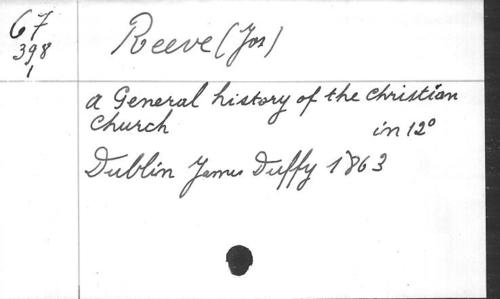 67
398
1
Reeve (Jos)
a General history of the christian
church in 12°
Dublin James Duffy 1863